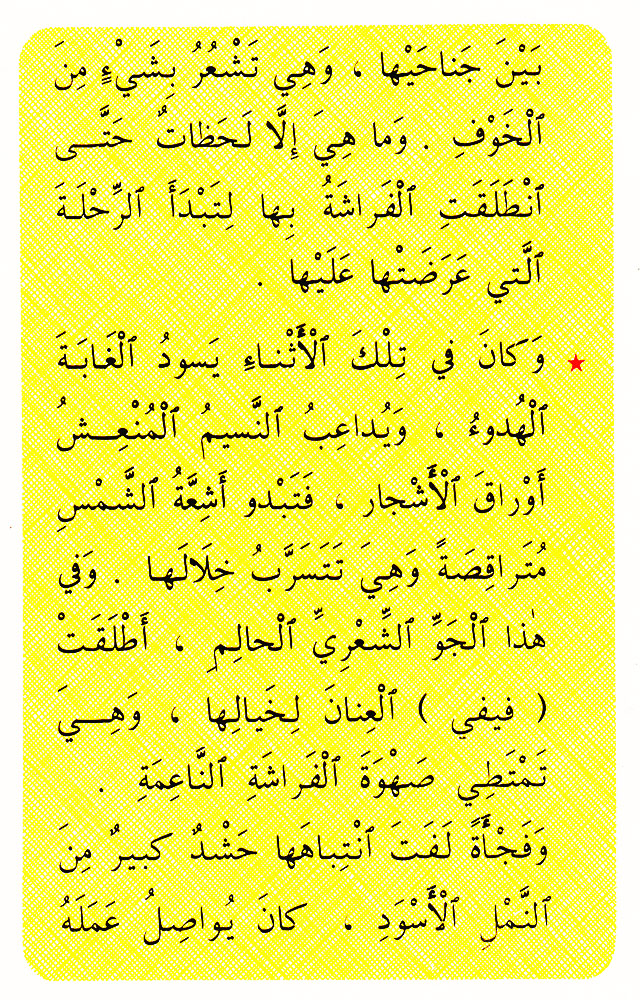 بَيْنَ جَناحَيْها ، وَهِي تَشْعُرُ بِشَيْءٍ مِنَ
ٱلْخَوْفِ . وَما هِيَ إِلَّا لَحَظاتٌ حَتَّــى
ٱنْطَلَقَتِ ٱلْفَراشَةُ بِها لِتَبْدَأَ ٱلرِّحْلَةَ
ٱلَّتي عَرَضَتْها عَلَيْها .
وَكانَ في تِلْكَ ٱلْأَثْناءِ يَسودُ ٱلْغَابَةَ
ٱلْهُدوءُ ، وَيُداعِبُ ٱلنَّسيمُ ٱلْمُنْعِــشُ
أَوْراقَ ٱلْأَشْجار ، فَتَبْدو أَشِعَّةُ ٱلشَّمْسِ
مُتَراقِصَةً وَهِيَ تَتَسَرَّبُ خِلَالَها . وَفي
هٰذا ٱلْجَوِّ ٱلشِّعْرِيِّ ٱلْحالِمِ ، أَطْلَقَتْ
( فيفي ) ٱلْعِنانَ لِخَيالِها ، وَهِــيَ
تَمْتَطِي صَهْوَةَ ٱلْفَراشَةِ ٱلنَّاعِمَةِ .
وَفَجْأَةً لَفَتَ ٱنْتِباهَها حَشْدٌ كبيرٌ مِنَ
ٱلنَّمْلِ ٱلْأَسْوَدِ ، كانَ يُواصِلُ عَمَلَهُ